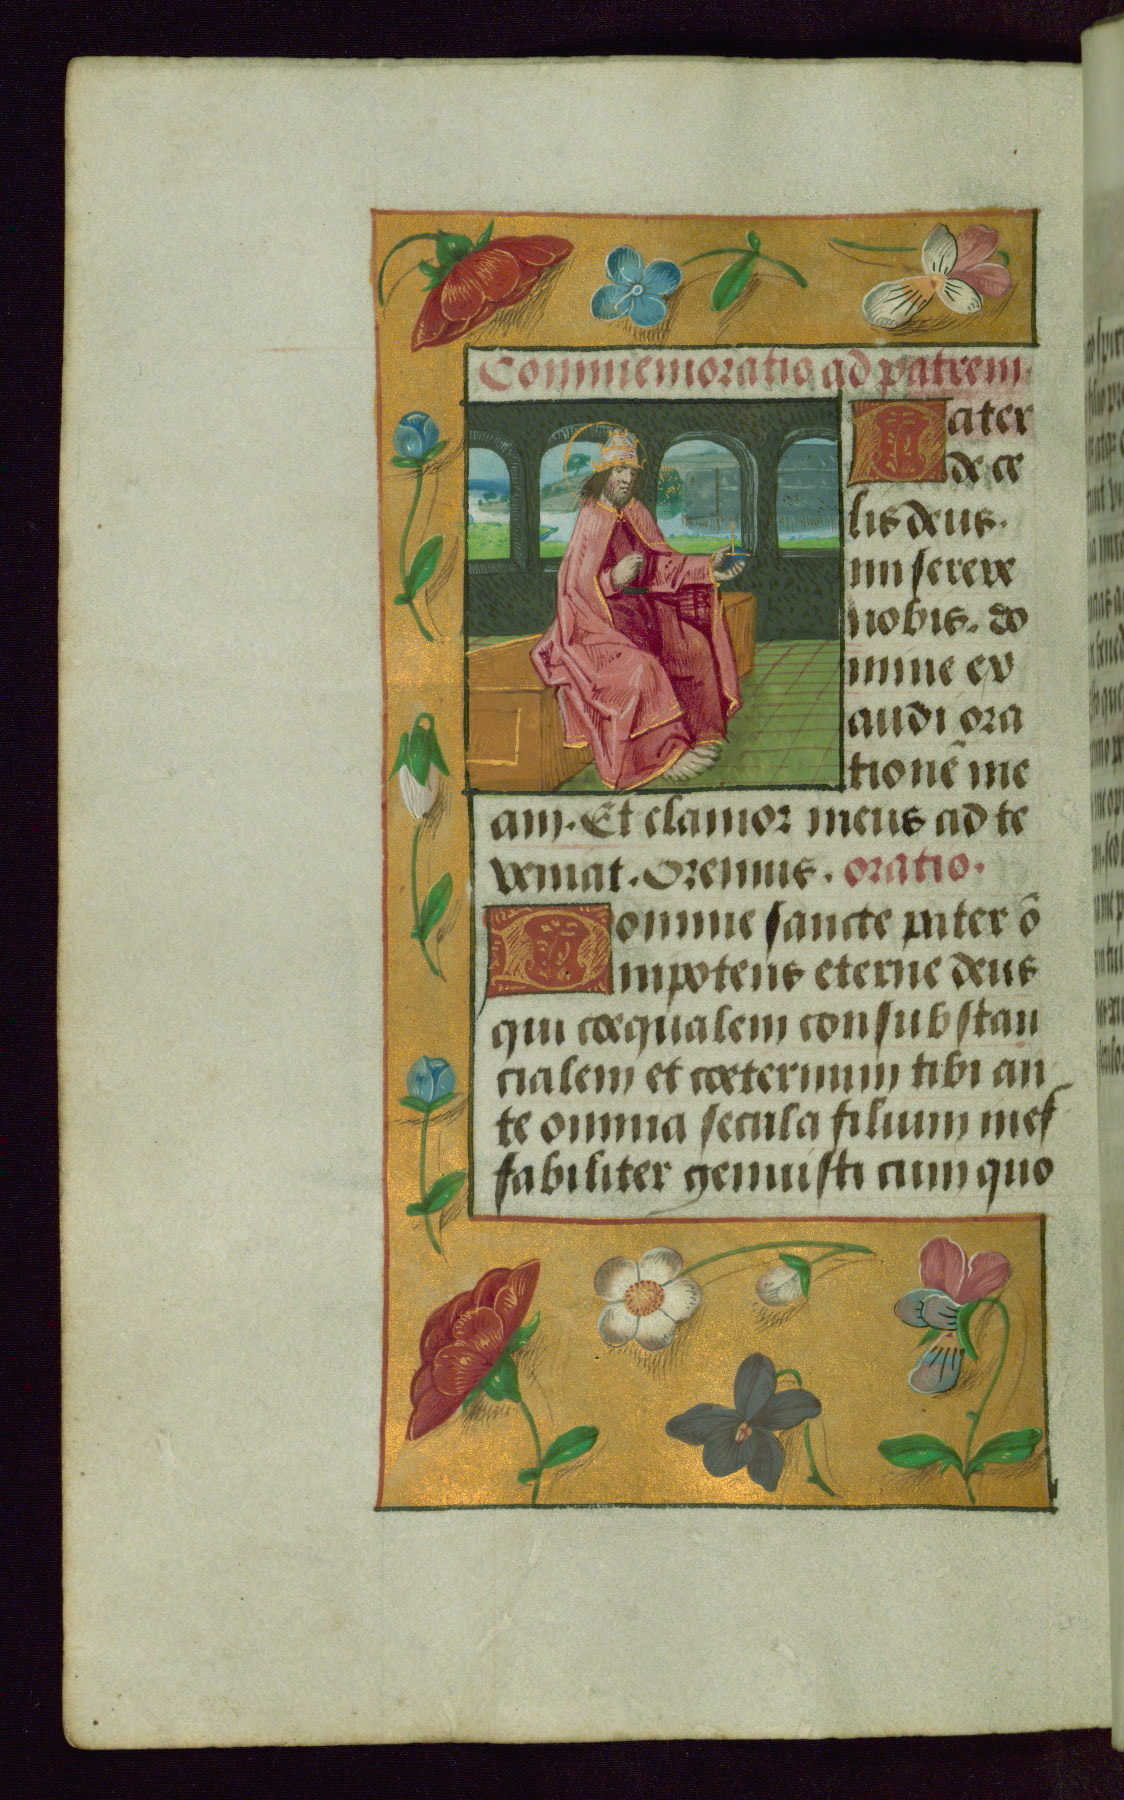 Commemoratio ad patrem.
Pater
de ce
lis deus.
miserere
nobis. do
mine ex
audi ora
tionē me
am. Et clamor meus ad te
veniat. Oremus. oratio.
Domine sancte pater ō
mnipotens eterne deus
qui coequalem consubstan
cialem et coeternum tibi an
te omnia secula filium inef
fabiliter genuisti cum quo